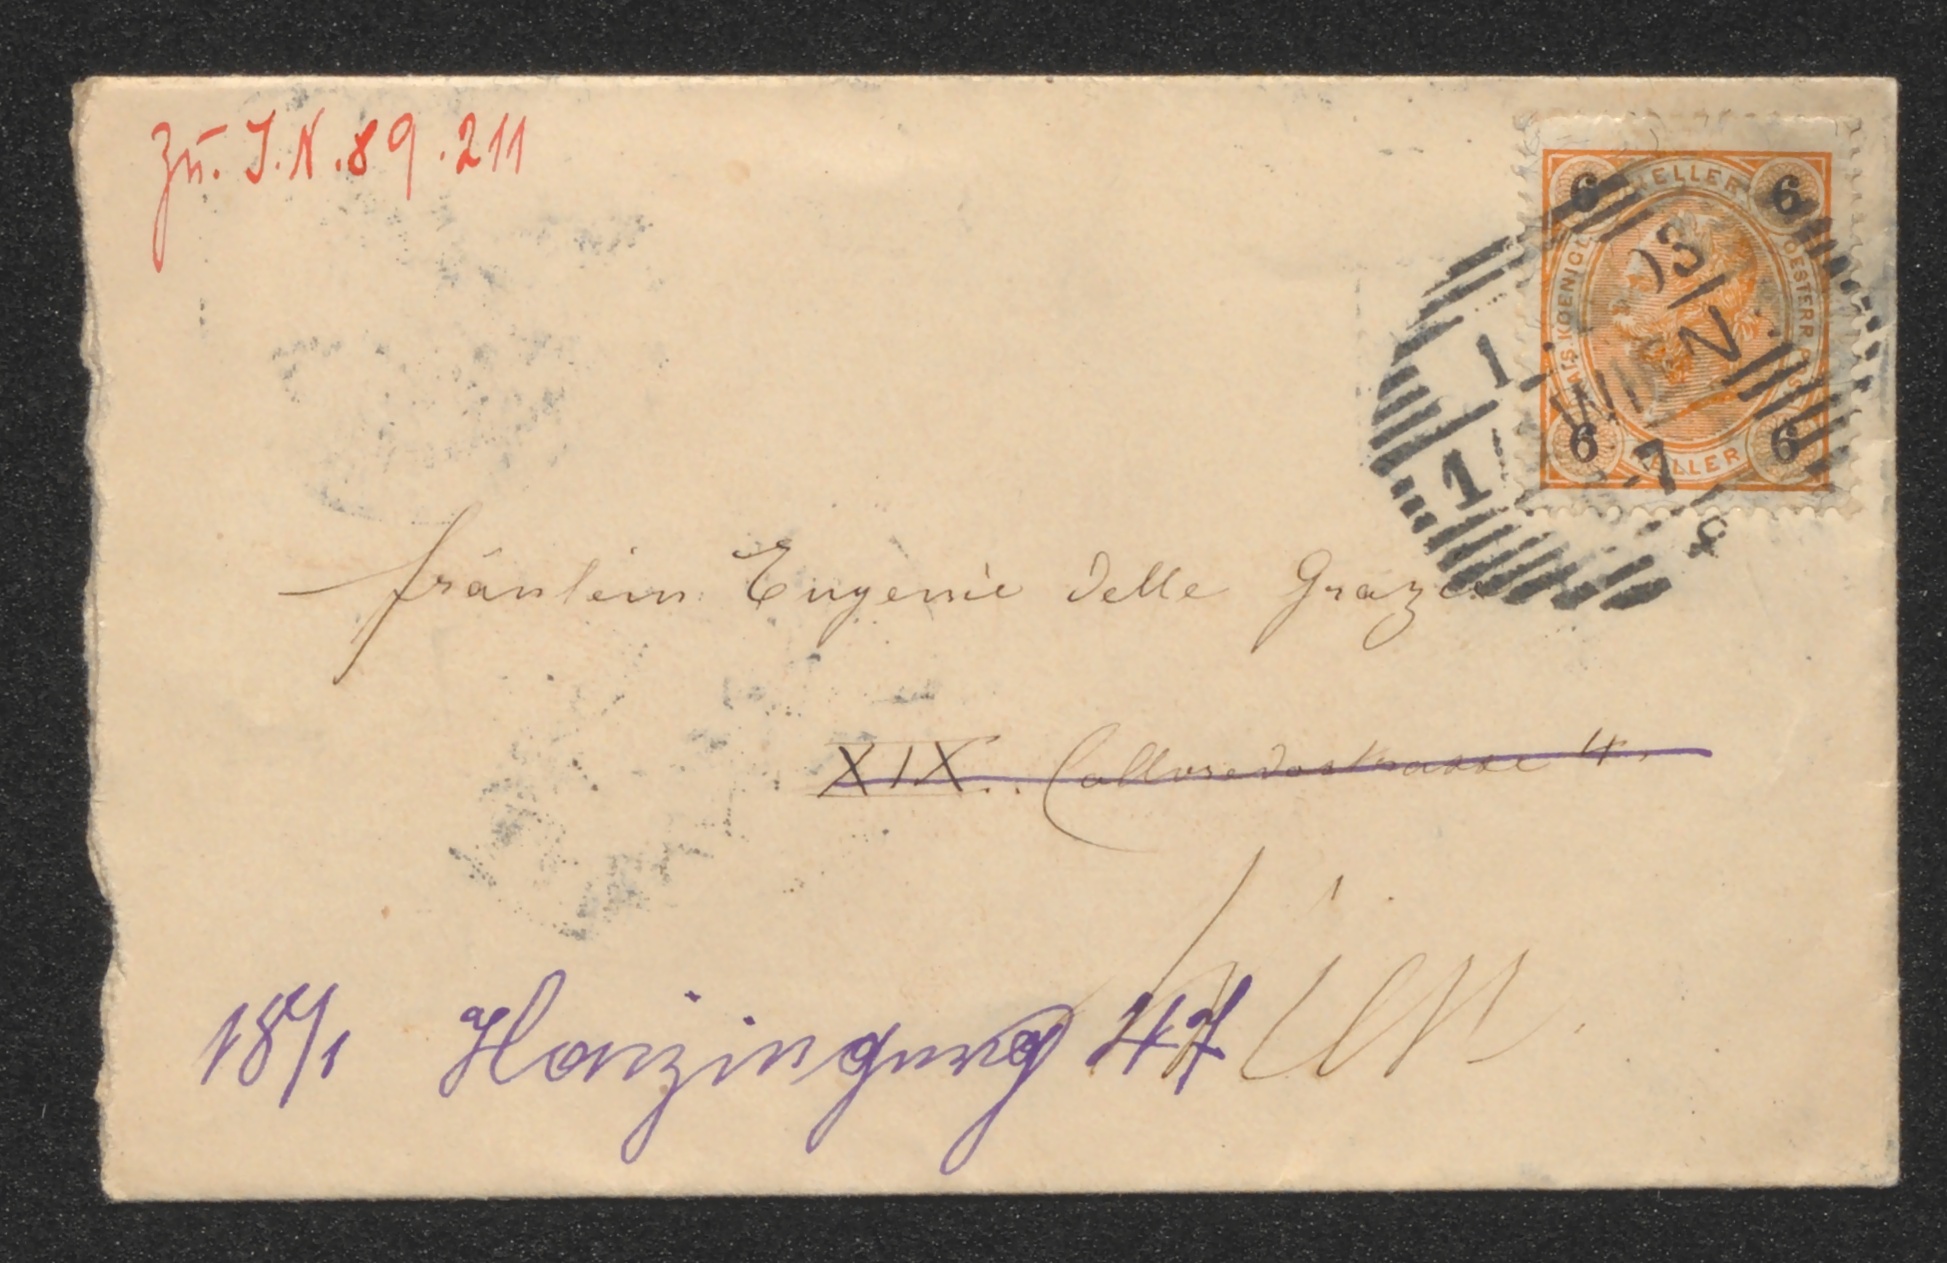 Zu. I.N. 89.211
6 HELLER 6
KAIS. KOENIGL. OESTERR. POST
6 HELLER 6
WIEN
Fräulein Eugenie delle Grazie
XIX. Colloredostrasse 4.
Wien.
18/1 Haizingerg 47